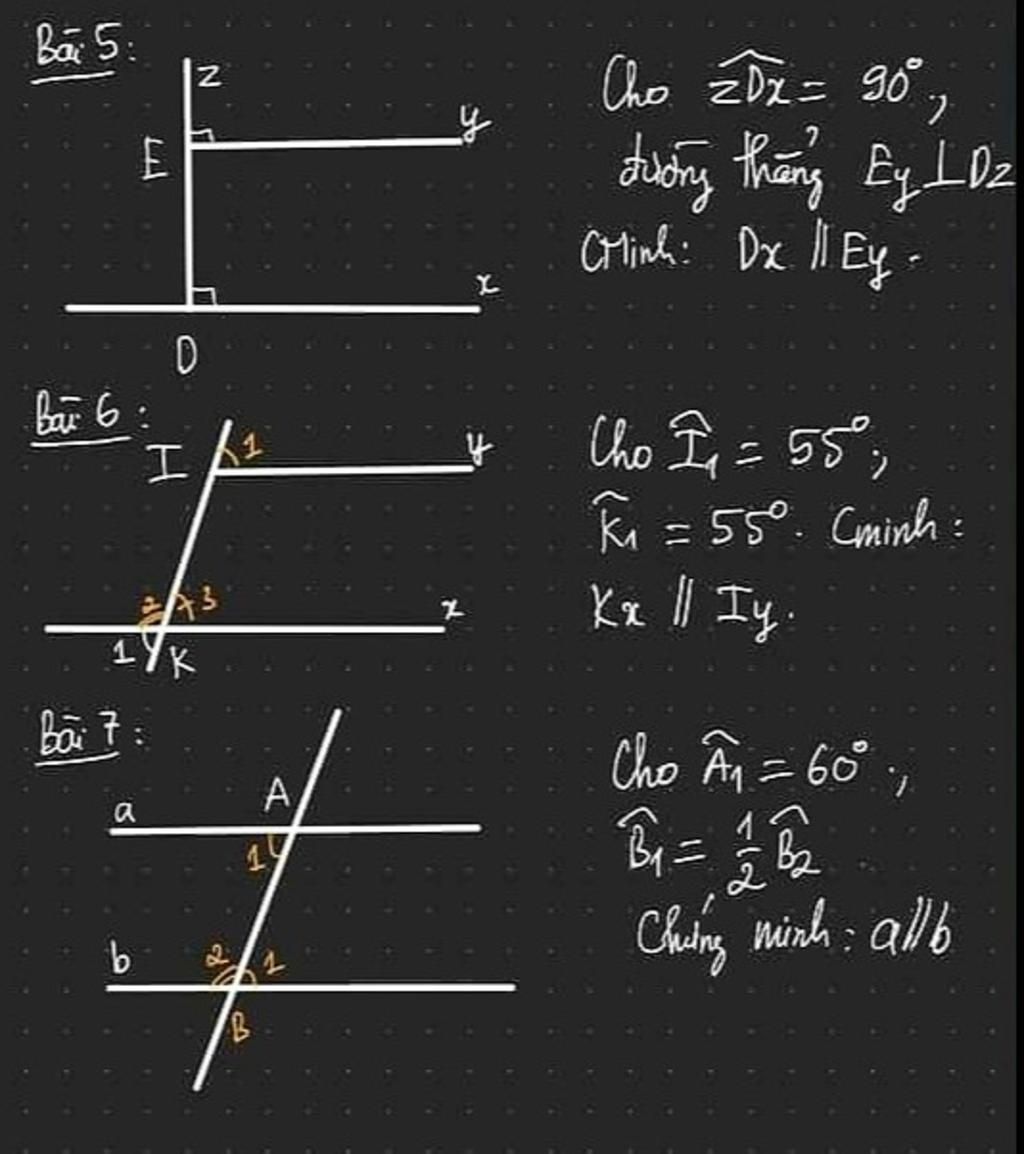 Bài 5:
z
y
E
x
D
Cho \widehat{zDx} = 90°,
đường thẳng Ey ⊥ Dz
CMinh: Dx // Ey.
Bài 6:
I
1
y
2
3
x
1
K
Cho \widehat{I₁} = 55°;
\widehat{K₁} = 55°. Cminh:
Kx // Iy.
Bài 7:
A
a
1
b
2
1
B
Cho \widehat{A₁} = 60°;
\widehat{B₁} = \frac{1}{2} \widehat{B₂}
Chứng minh: a//b